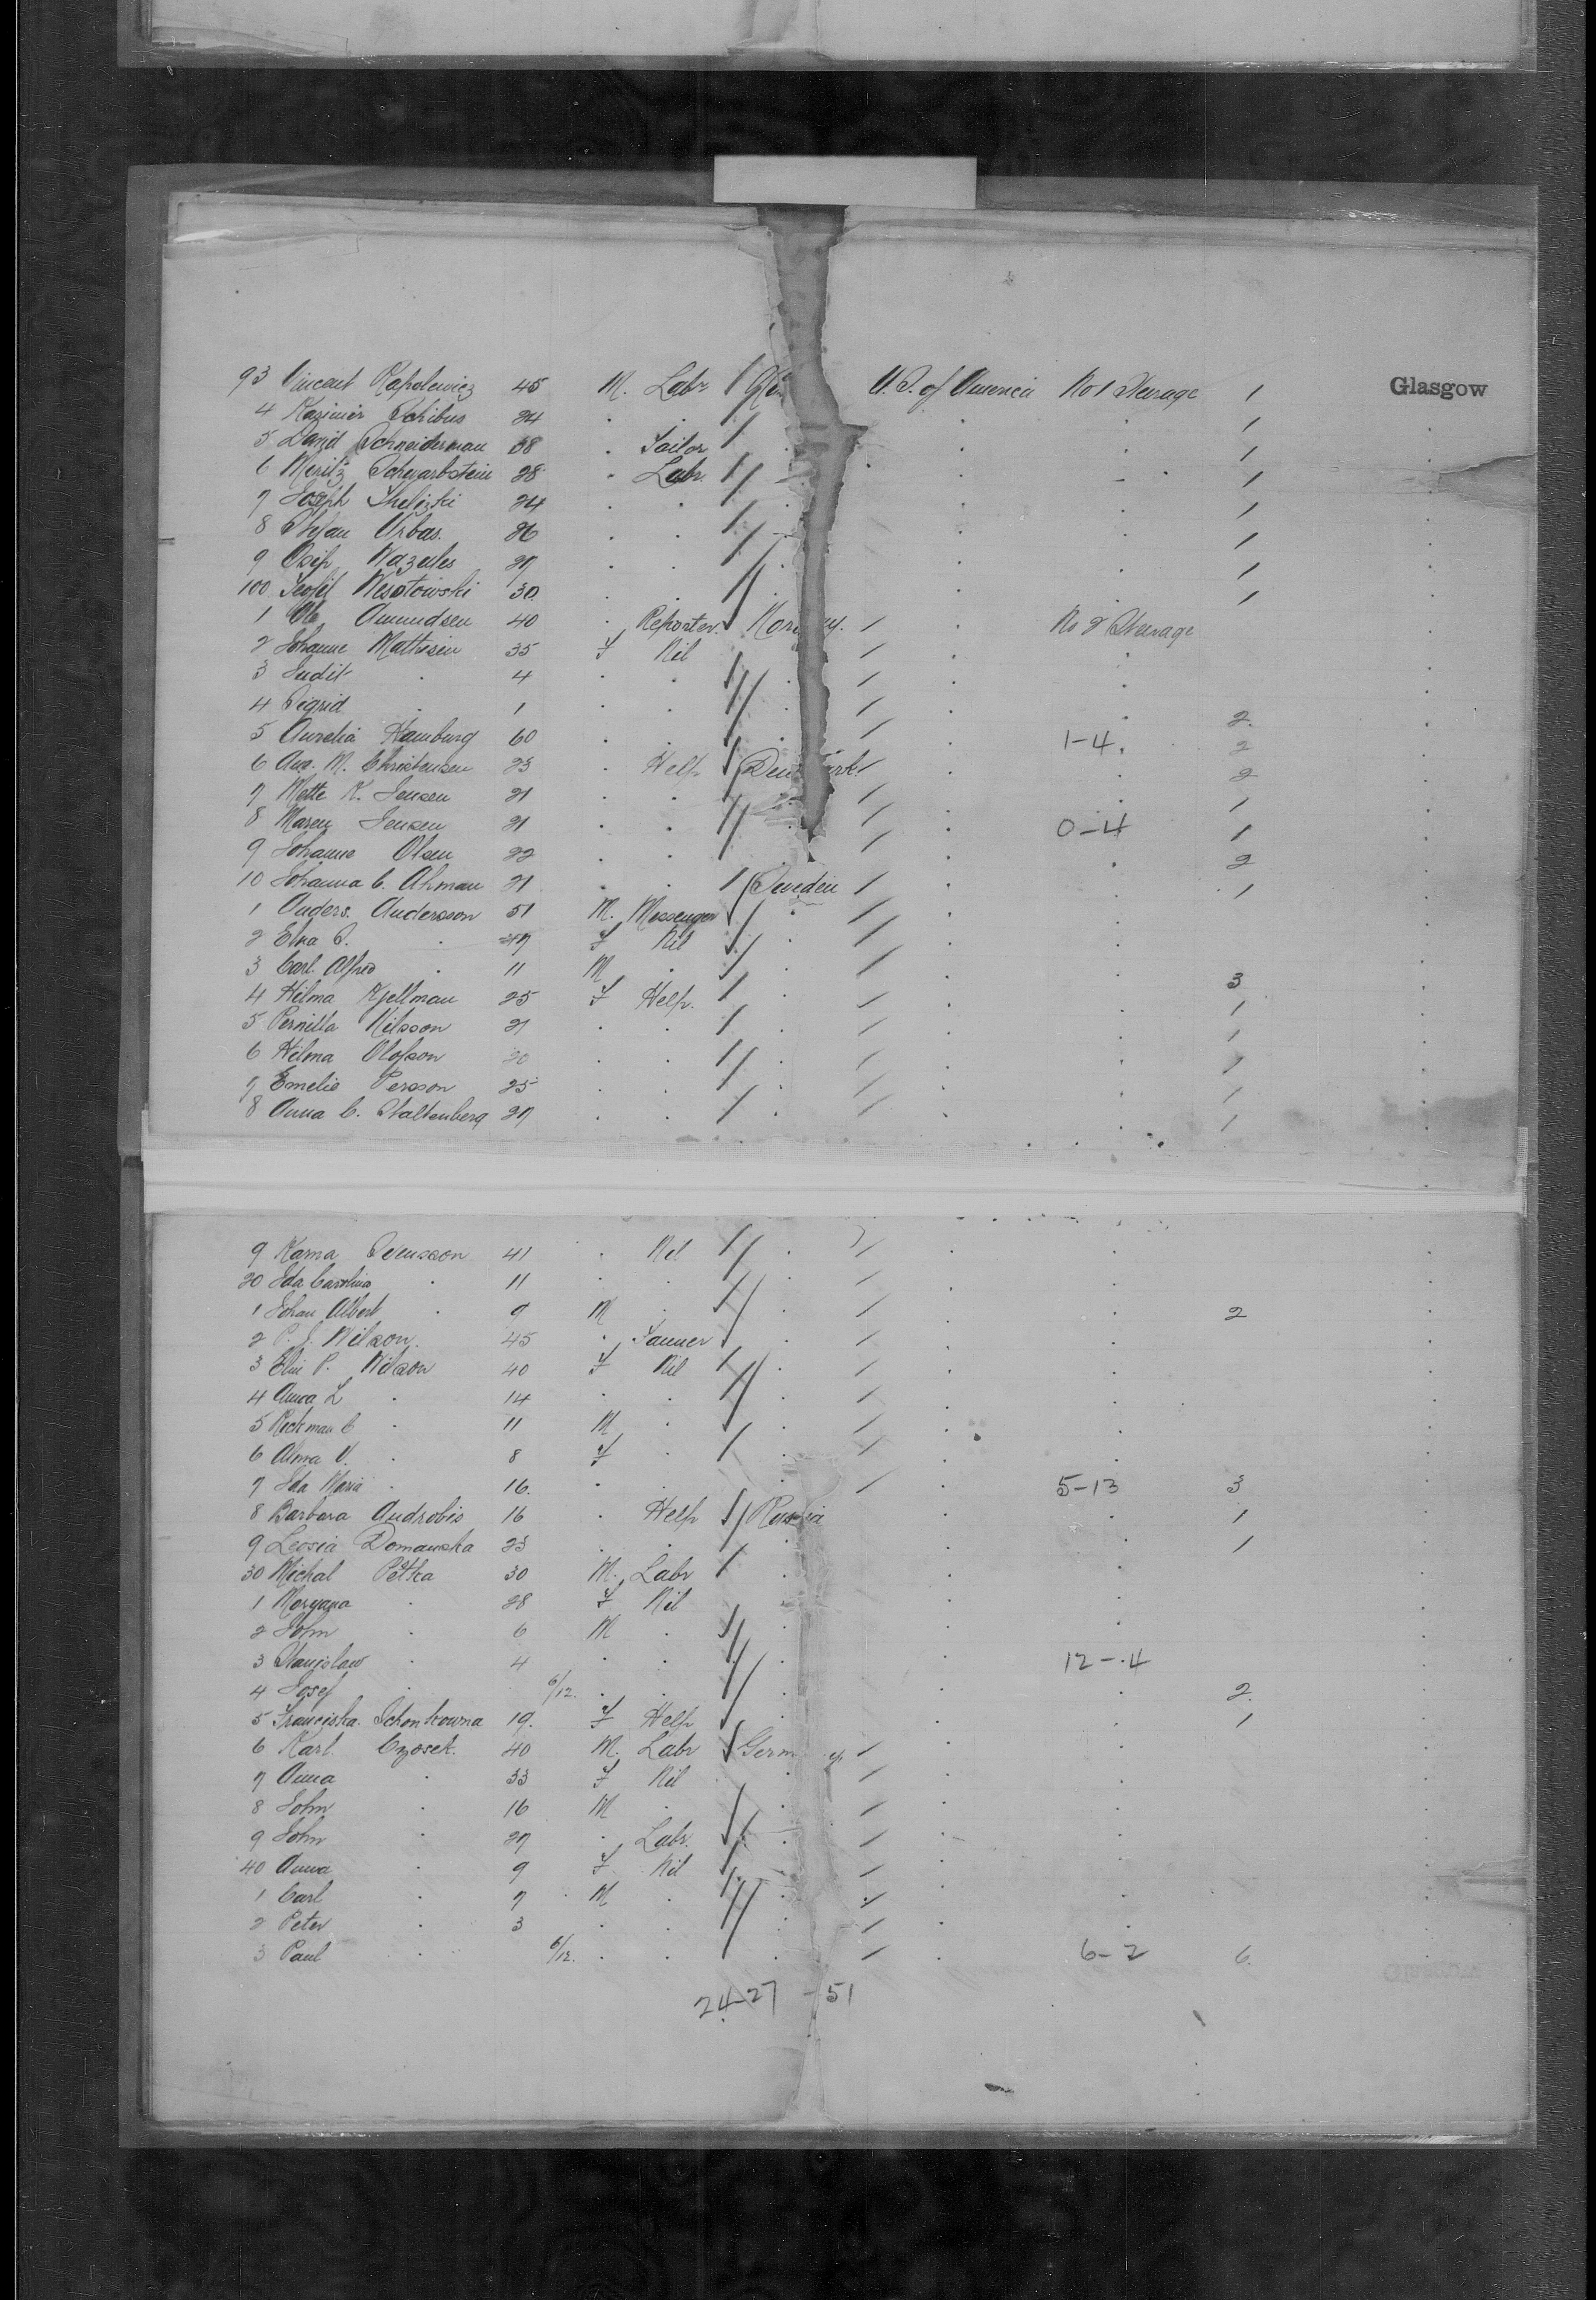 93 Vincent Rapolewicz 45 M. Labr / U. S. of America No 1 Steerage 1 Glasgow
4 Kazimir Schibus 24 . . / . . 1
5 David Schneiderman 38 . Tailor / . . 1
6 Moritz Schwarbstein 28 . Labr. / . . 1
7 Joseph 24 . . / . . 1
8 Stefan Urbas. 26 . . / . . 1
9 Osip Wazales 27 . . / . . 1
100 Teofil Wesotowski 30 . . / . . 1
1 Ole Amundsen 40 . Reporter. / Norway. / . No 2 Steerage
2 Johanne Mathisen 35 F Nil / . / . .
3 Judit . 4 . . / . / . .
4 Sigrid . 1 . . / . / . . 2
5 Aurelia Hamburg 60 . . / . / . 1-4. 2
6 Ane. M. Christensen 23 . Help / Denmark / . . 2
7 Mette K. Jensen 21 . . / . / . . 1
8 Maren Jensen 21 . . / . / . 0-4 1
9 Johanne Olsen 22 . . / . / . . 2
10 Johanna C. Ahman 21 . . / Sweden / . . 1
1 Anders. Andersson 51 M. Messenger / . / . .
2 Elna S. . 47 F Nil / . / . .
3 Carl Alfred . 11 M . / . / . . 3
4 Hilma Kjellman 25 F Help. / . / . . 1
5 Pernilla Nilsson 21 . . / . / . . 1
6 Hilma Olofson 20 . . / . / . . 1
7 Emelie Persson 25 . . / . / . . 1
8 Anna C. Staltenberg 27 . . / . / . . 1
9 Karna Svensson 41 . Nil / . / . .
20 Ida Carolina . 11 . . / . / . .
1 Johan Albert . 9 M . / . / . . 2
2 P. J. Nilson. 45 . Tanner / . / . .
3 Elin P. Nilson 40 F Nil / . / . .
4 Anna L . 14 . . / . / . .
5 C . 11 M . / . / . .
6 Alma V. . 8 F . / . / . .
7 Ida Maria . 16. . . . / . 5-13 3
8 Barbara Androbis 16 . Help / Russia . . 1
9 Leosia Domanska 23 . . / . . . 1
30 Michal Petka 30 M. Labr / . . .
1 Maryana . 28 F Nil . .
2 John . 6 M . / . .
3 Stanislaw . 4 . . / . 12-4
4 Josef . 6/12. . . / . . 2
5 Franciska. Schonkowna 19. F Help / . . 1
6 Karl. Czosek. 40 M. Labr / Germ y / . .
7 Anna . 33 F Nil . / . .
8 John . 16 M . / . / . .
9 John . 27 . Labr. / . / . .
40 Anna . 9 F. Nil / . / . .
1 Carl . 7 M . / . / . .
2 Peter . 3 . . / . / . .
3 Paul . 6/12. . . / . / . 6-2 6.
24-27 - 51